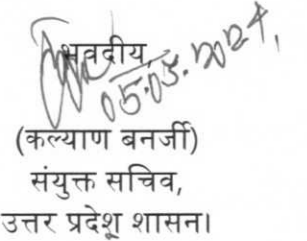 भवदीय,
05.03.2024,
(कल्याण बनर्जी)
संयुक्त सचिव,
उत्तर प्रदेश शासन।